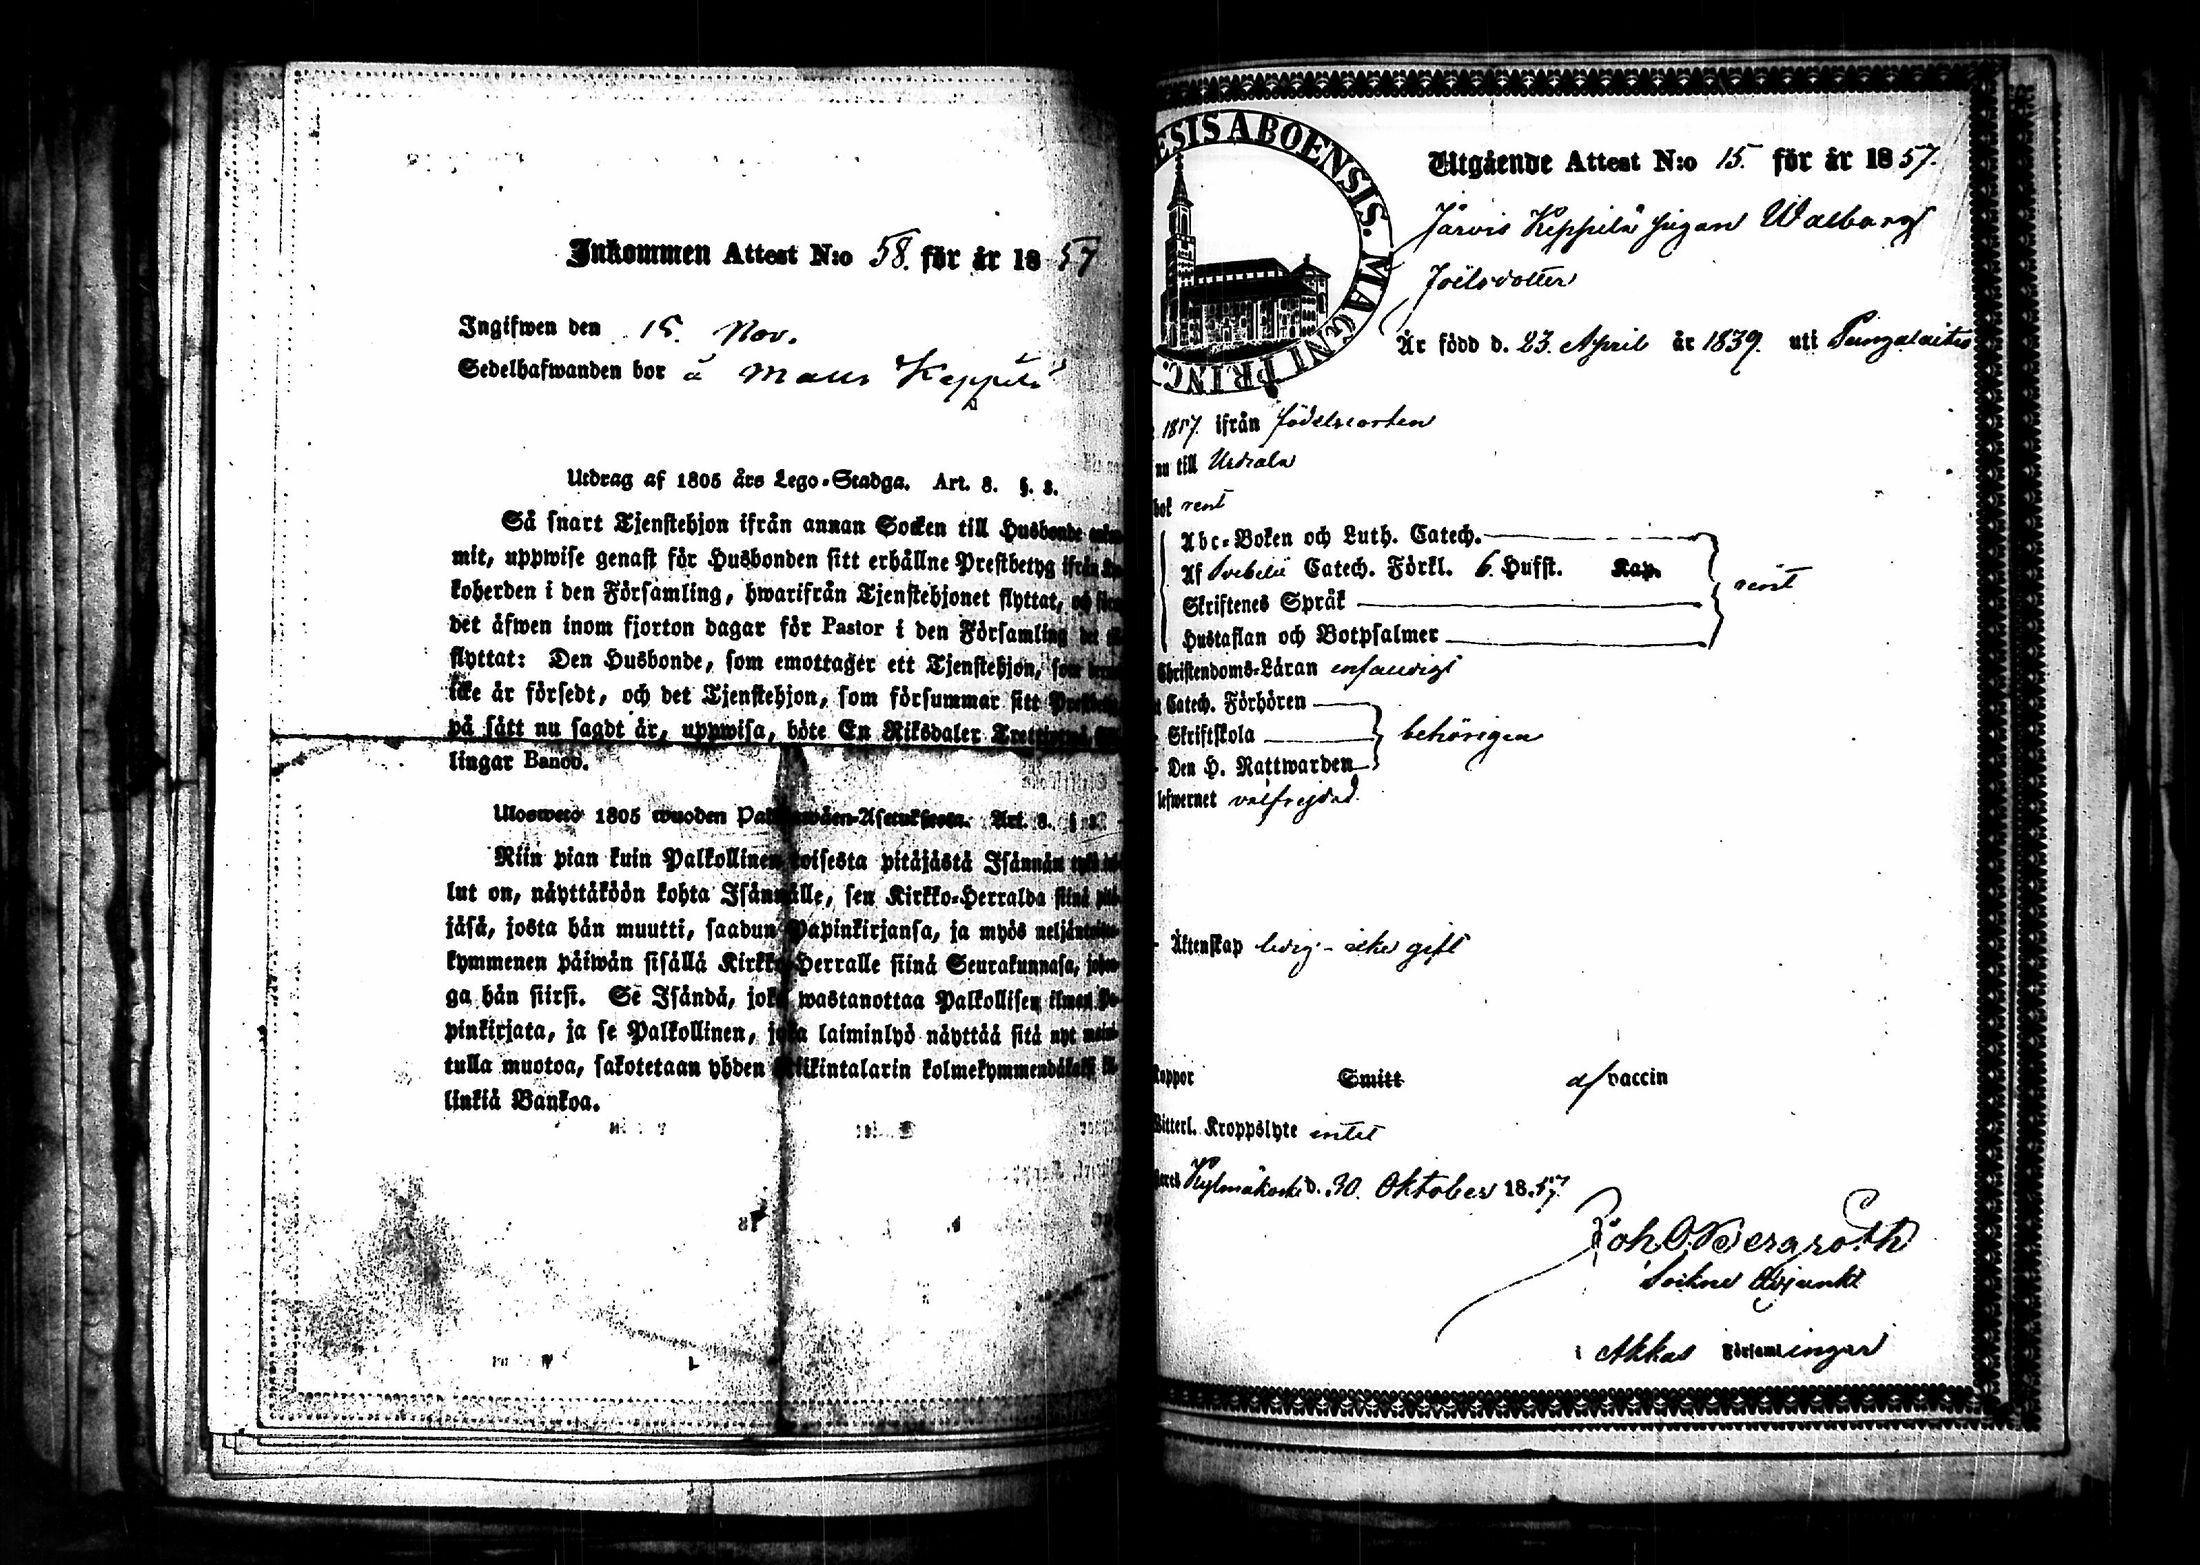 Inkommen Attest N:o 58. för år 1857
Ingifwen den 15. Nov.
Sedelhafwanden bor å Keppilä
Utdrag af 1805 års Lego-Stadga. Art. 8. §. 3.
Så snart Tjenstehjon ifrån annan Socken till Husbonde
mit, uppwise genast för Husbonden sitt erhållne Prestbetyg ifrån
koherden i den Församling, hwarifrån Tjenstehjonet flyttat, och
det äfwen inom fjorton dagar för Pastor i den Församling det
flyttat: Den Husbonde, som emottager ett Tjenstehjon, som
icke är försedt, och det Tjenstehjon, som försummar sitt
på sätt nu sagdt är, uppwisa, böte En Riksdaler
lingar Banco.
Ulosweto 1805 wuoden Art. 8. §
Niin pian kuin Palkollinen toisesta pitäjästä Isännän
lut on, näyttäköön kohta Isännälle, sen Kirkko-Herralda siinä
jäsä, josta hän muutti, saadun Papinkirjansa, ja myös
kymmenen päiwän sisällä Kirkko-Herralle siinä Seurakunnasa,
ga hän siirsi. Se Isändä, joka wastanottaa Palkollisen ilman
pinkirjata, ja se Palkollinen, joka laiminlyö näyttää sitä nyt
tulla muotoa, sakotetaan yhden Riikintalarin
linkiä Bankoa.
ESIS ABOENSIS. MAGNI PRINC.
Utgående Attest N:o 15. för år 1857.
Järvis Keppilä pigan Walborg
Joëlsdotter
Är född d. 23. April år 1839. uti
1857. ifrån födelseorten
nu till Urdiala
bok rent
Abc-Boken och Luth. Catech.
Af Svebelii Catech. Förkl. 6. Hufst. Kap.
Skriftenes Språk
rent
Hustaflan och Botpsalmer
Christendoms-Läran enfaldigt
Catech. Förhören
Skriftskola
behörigen
Den H. Nattwarden
lefwernet välfrejdad.
Äktenskap ledig - icke gift
koppor Smitt af vaccin
Witterl. Kroppslyte intet
Kylmäkoski d. 30. Oktober 1857.
Joh. O. Bergroth
Sockne Adjunkt
i Akkas Församlingar